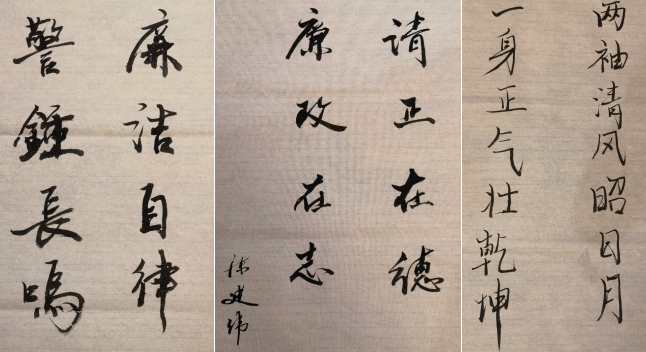 廉洁自律
警鍾長鳴
清正在德
廉政在志
两袖清风昭日月
一身正气壮乾坤